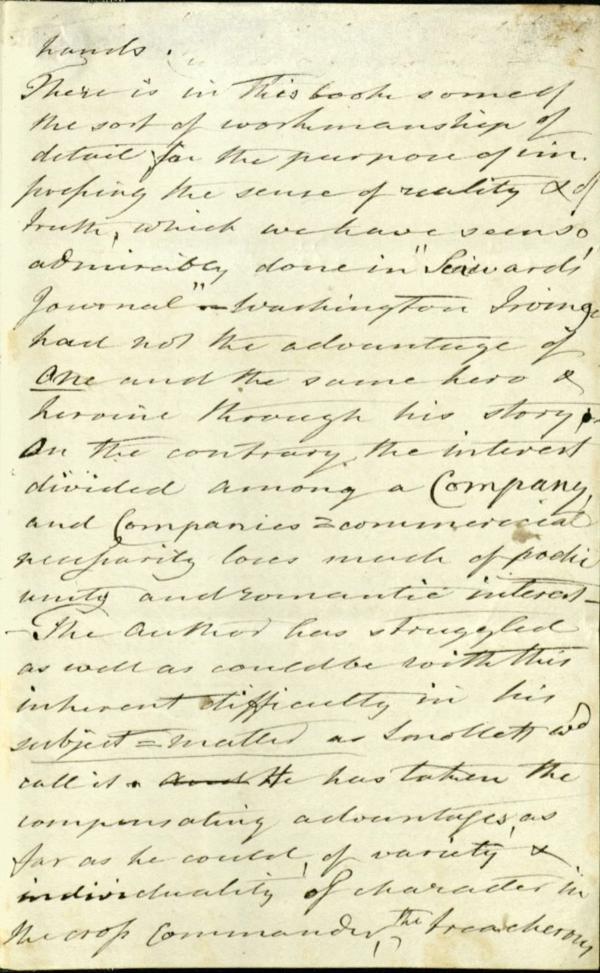 hands.
There is in this book some of
the sort of workmanship of
detail for the purpose of im-
pressing the sense of reality & of
truth, which we have seen so
admirably done in "Seawards'
Journal" - Washington Irving
had not the advantage of
one and the same hero &
heroine through his story.
On the contrary the interest
divided among a Company,
and Companies = commercial
necessarily loses much of
unity and romantic interest -
- The author has struggled
as well as could be with this
inherent difficulty in his
subject = matter as Smollett wd
call it. and He has taken the
compensating advantages, as
far as he could, of variety &
individuality of character in
the cross Commander, the treacherous